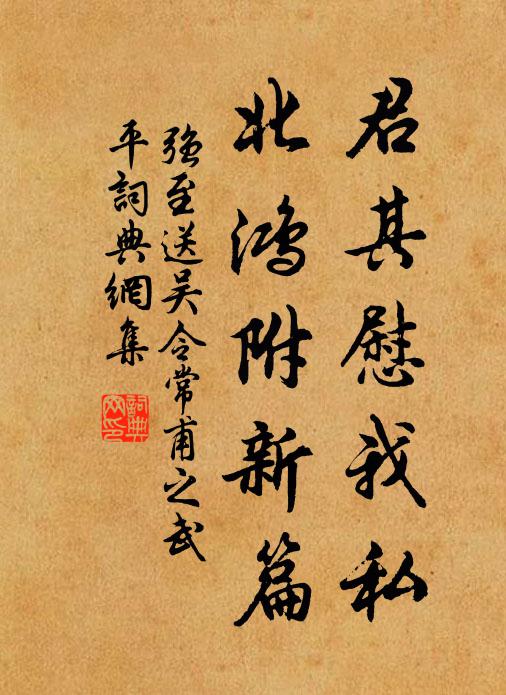 君其慰我私
北鴻附新篇
強至送吴令常甫之武
平詞典網集
詞典
网印